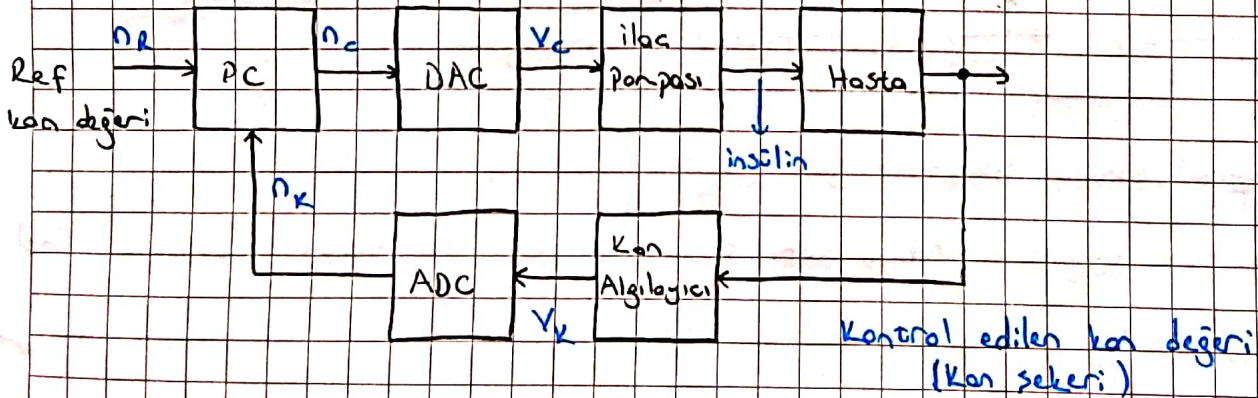 n_R
Ref
kan değeri
PC
n_c
DAC
V_c
ilaç
Pompası
insülin
Hasta
n_K
ADC
V_K
Kan
Algılayıcı
Kontrol edilen kan değeri
(Kan şekeri)